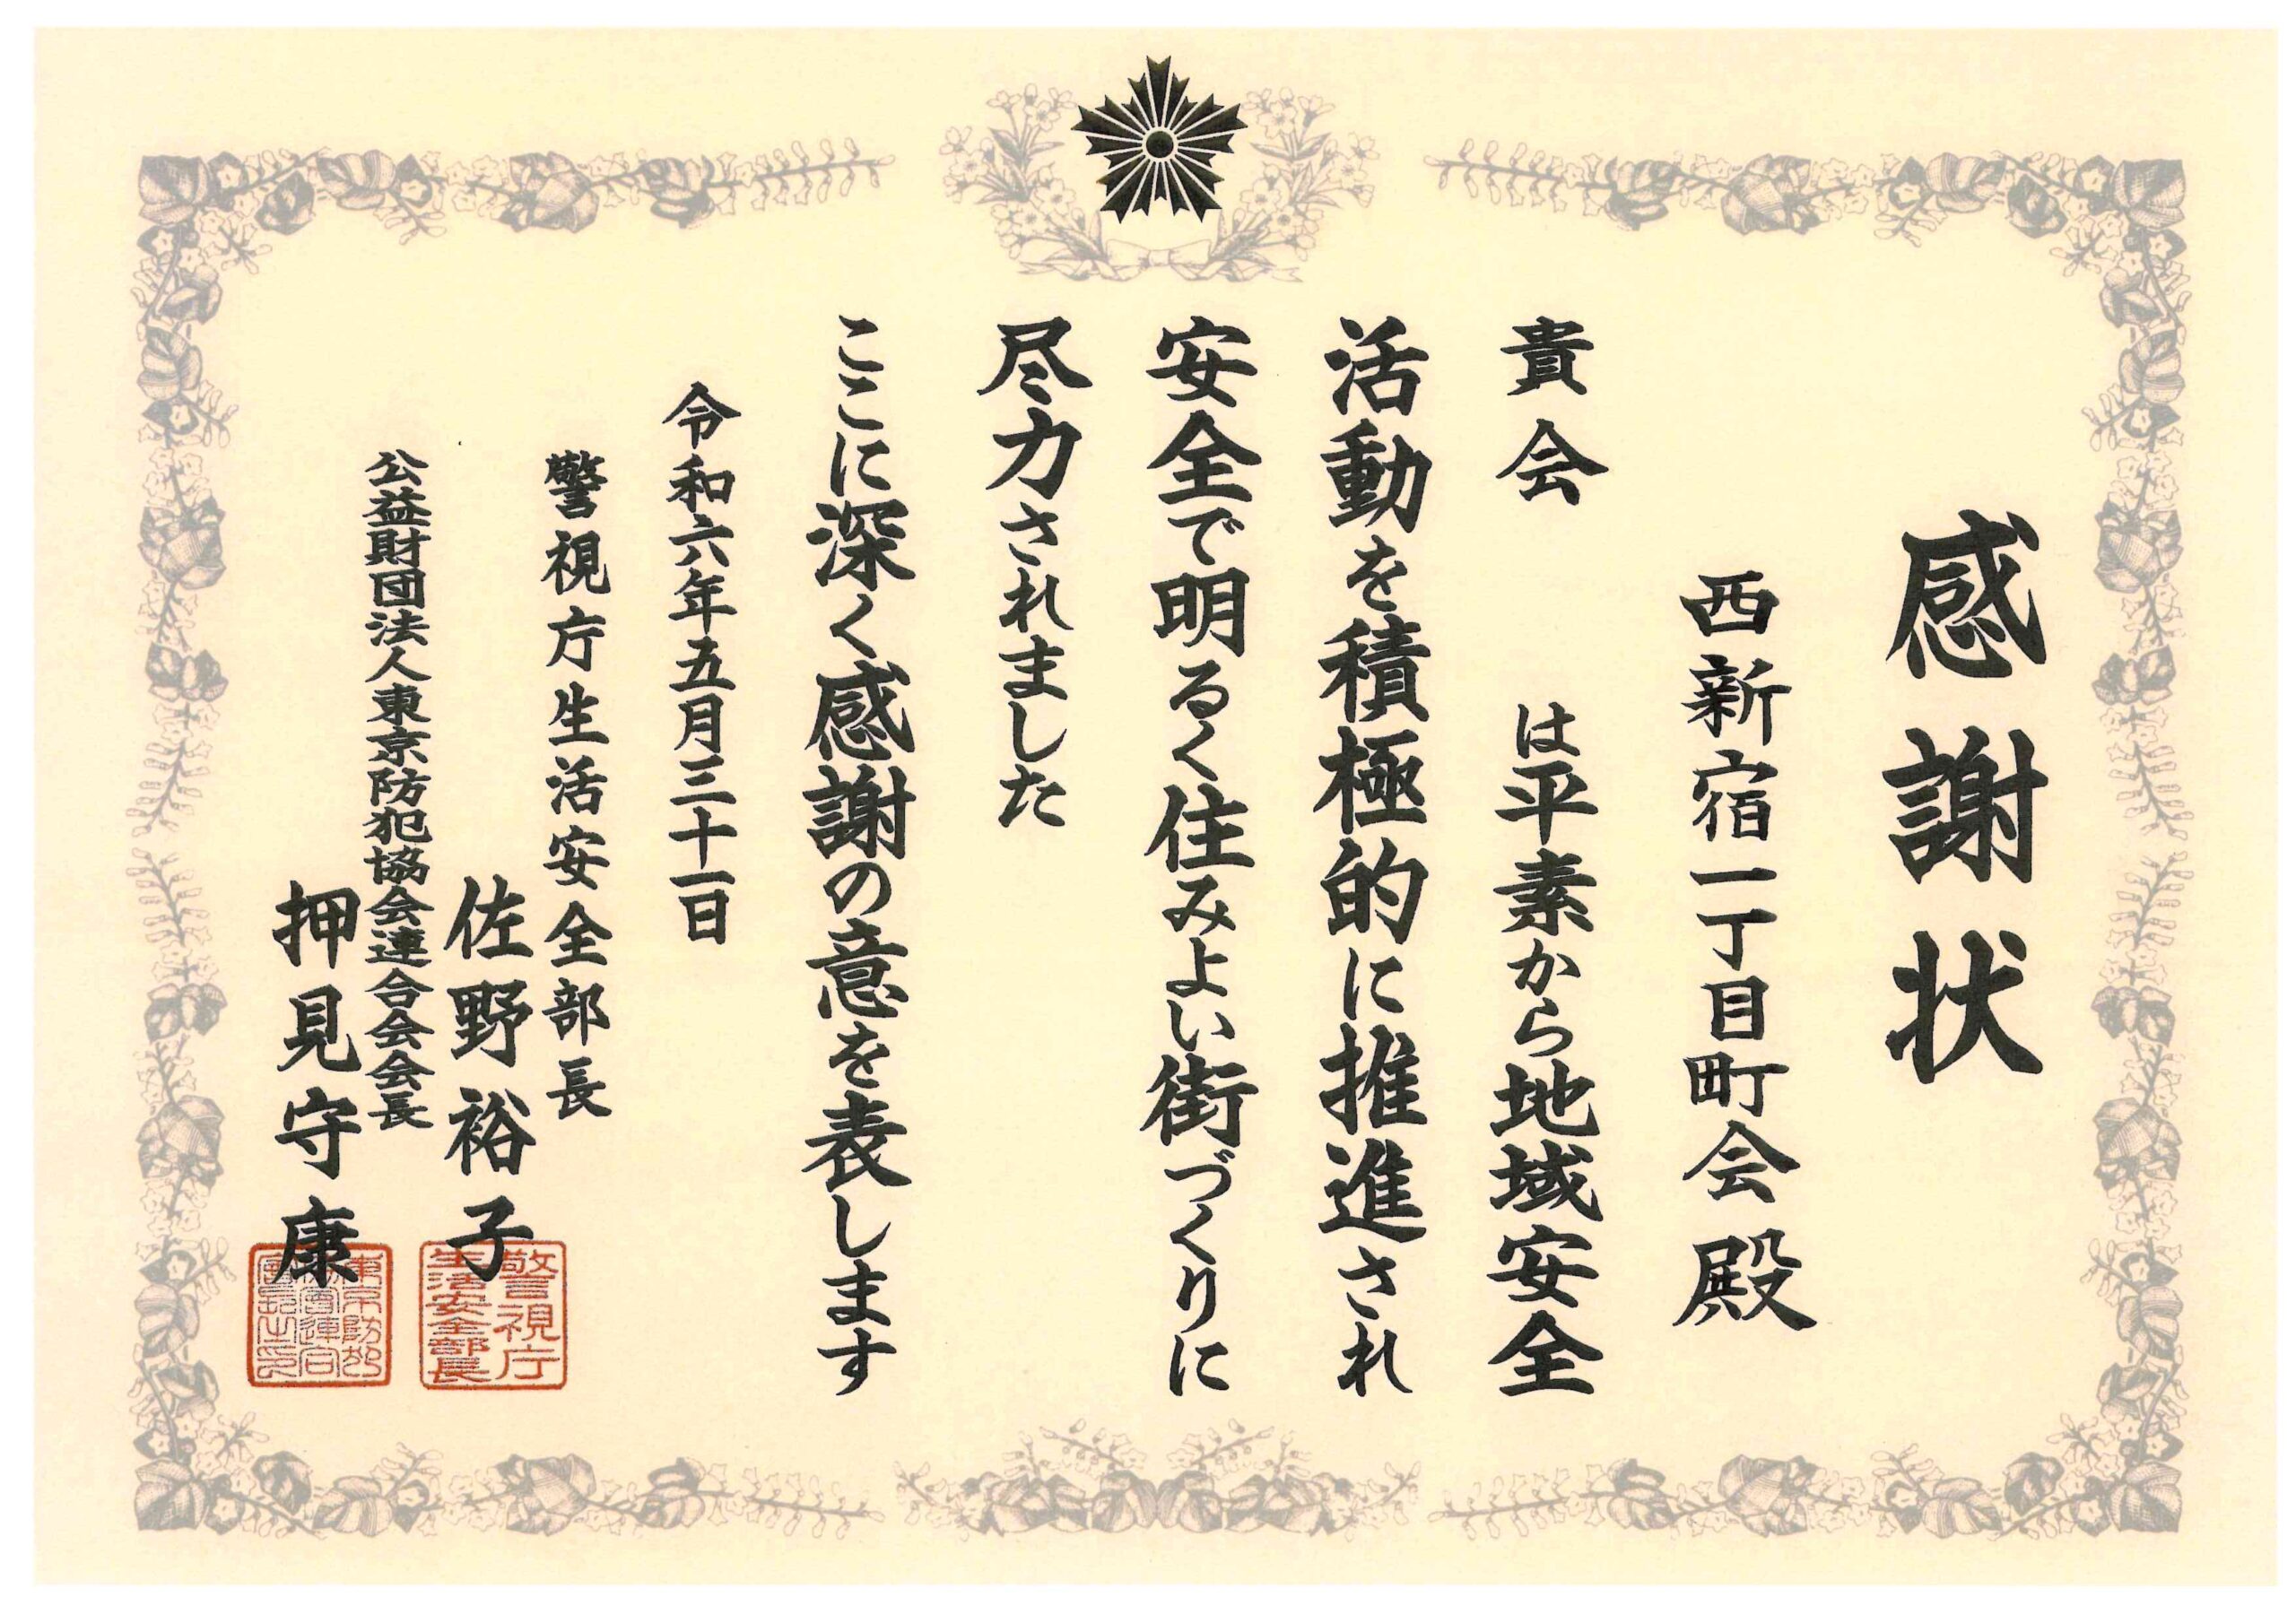 感謝状
西新宿一丁目町会殿
貴会　は平素から地域安全
活動を積極的に推進され
安全で明るく住みよい街づくりに
尽力されました
ここに深く感謝の意を表します
令和六年五月三十一日
警視庁生活安全部長
佐野裕子
警視庁
生活安全部長
公益財団法人東京防犯協会連合会会長
押見守康
東京防犯
協會連合
會長之印